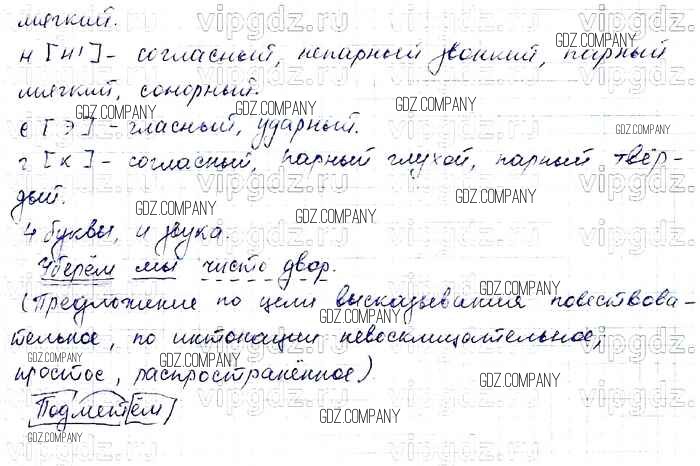 мягкий.
н [н'] - согласный, непарный звонкий, парный
мягкий, сонорный.
е [э] - гласный, ударный.
г [к] - согласный, парный глухой, парный твёр-
дый.
4 буквы, 4 звука.
Уберём мы чисто двор.
(Предложение по цели высказывания повествова-
тельное, по интонации невосклицательное,
простое, распространённое)
Подметём)